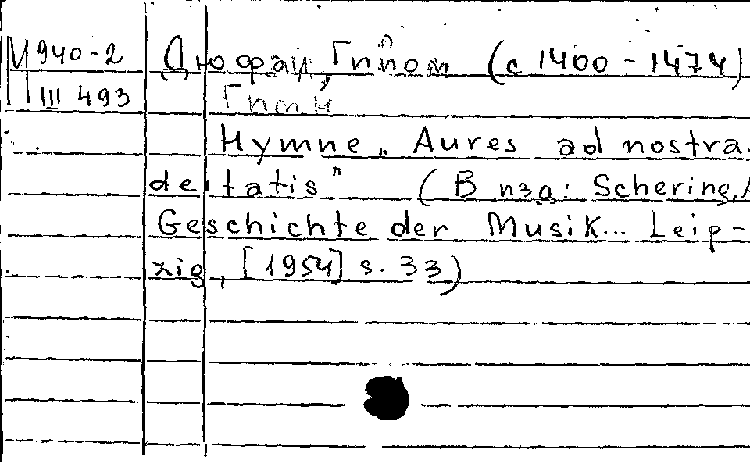 М 940-2 Дюфаи, Гийом (с 1400 - 1474)
П III 493 Гимн
Hymne „Aures ad nostra.
deitatis" (В изд: Schering, A
Geschichte der Musik... Leip-
zig, [1954] s. 33)